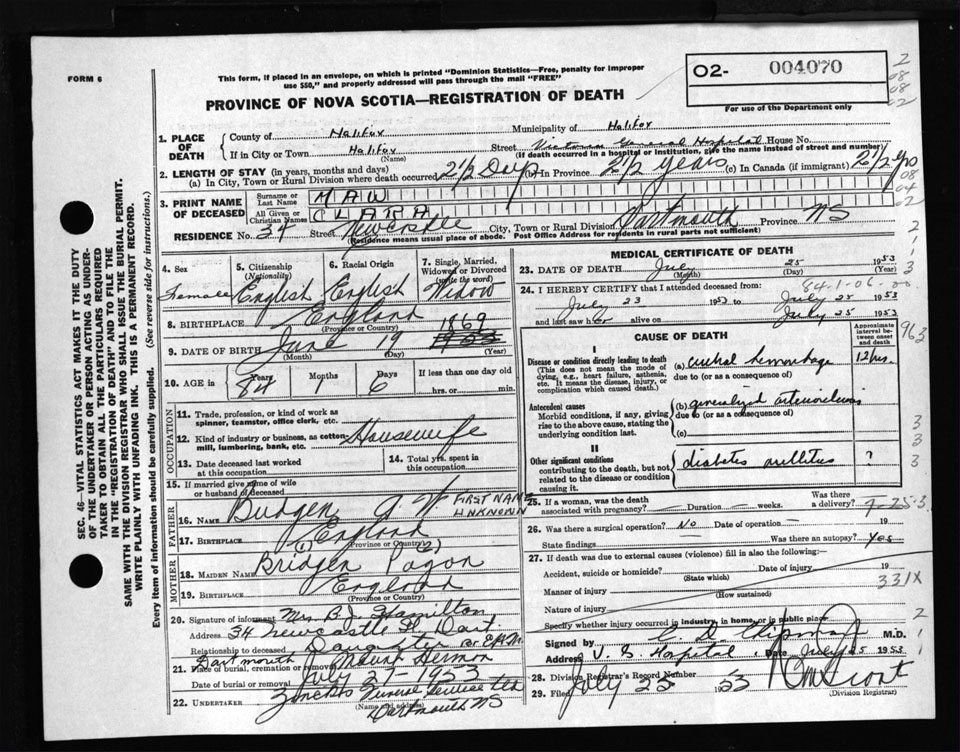 FORM 6
This form, if placed in an envelope, on which is printed "Dominion Statistics—Free, penalty for improper
use $50," and properly addressed will pass through the mail "FREE"
PROVINCE OF NOVA SCOTIA—REGISTRATION OF DEATH
O2- 004070
For use of the Department only
1. PLACE OF DEATH
County of Halifax Municipality of Halifax
If in City or Town Halifax Street Victoria General Hospital House No.
(Name) (If death occurred in a hospital or institution, give the name instead of street and number)
2. LENGTH OF STAY (in years, months and days)
(a) In City, Town or Rural Division where death occurred 2 1/2 Days (b) In Province 2 1/2 years (c) In Canada (if immigrant) 2 1/2 yrs
3. PRINT NAME OF DECEASED
Surname or Last Name MAW
All Given or Christian Names CLARA
RESIDENCE No. 34 Street Newcastle City, Town or Rural Division Dartmouth Province NS
(Residence means usual place of abode. Post Office Address for residents in rural parts not sufficient)
4. Sex Female
5. Citizenship (Nationality) English
6. Racial Origin English
7. Single, Married, Widowed or Divorced (write the word) Widow
8. BIRTHPLACE England
(Province or Country)
9. DATE OF BIRTH June 19 1869 1953
(Month) (Day) (Year)
10. AGE in 84 Years Months 6 Days
If less than one day old
hrs. or min.
OCCUPATION
11. Trade, profession, or kind of work as spinner, teamster, office clerk, etc.
12. Kind of industry or business, as cotton mill, lumbering, bank, etc. Housewife
13. Date deceased last worked at this occupation
14. Total yrs. spent in this occupation
15. If married give name of wife or husband of deceased
FATHER
16. NAME Budgen FIRST NAME UNKNOWN
17. BIRTHPLACE England
(Province or Country)
MOTHER
18. MAIDEN NAME (1) Bridgen (2) Pagon
19. BIRTHPLACE England
(Province or Country)
20. Signature of informant Mrs. B.J. Hamilton
Address 34 Newcastle St. Dart
Relationship to deceased Daughter
21. Place of burial, cremation or removal Dartmouth Mount Hermon
Date of burial or removal July 27-1953
22. UNDERTAKER Funeral Service Ltd
(Name and address)
Dartmouth NS
MEDICAL CERTIFICATE OF DEATH
23. DATE OF DEATH July 25 1953
(Month) (Day) (Year)
84-1-06-00
24. I HEREBY CERTIFY that I attended deceased from:
July 23 1953 to July 25 1953
and last saw her alive on July 25 1953
CAUSE OF DEATH
Approximate interval between onset and death
I
Disease or condition directly leading to death
(This does not mean the mode of dying, e.g., heart failure, asthenia, etc. It means the disease, injury, or complication which caused death.)
(a) cerebral hemorrhage 12 hrs.
due to (or as a consequence of)
Antecedent causes
Morbid conditions, if any, giving rise to the above cause, stating the underlying condition last.
(b) generalized arteriosclerosis
due to (or as a consequence of)
(c)
II
Other significant conditions
contributing to the death, but not related to the disease or condition causing it.
diabetes mellitus ?
25. If a woman, was the death associated with pregnancy? — Duration — weeks. Was there a delivery?
26. Was there a surgical operation? No Date of operation — 19
State findings — Was there an autopsy? Yes
27. If death was due to external causes (violence) fill in also the following:—
Accident, suicide or homicide? Date of injury 19
(State which)
Manner of injury 331X
(How sustained)
Nature of injury
Specify whether injury occurred in industry, in home, or in public place
Signed by C. D. Chipman M.D.
Address V. G. Hospital Date July 25 1953
28. Division Registrar's Record Number
29. Filed July 25 1953
(Division Registrar)
SEC. 46—VITAL STATISTICS ACT MAKES IT THE DUTY
OF THE UNDERTAKER OR PERSON ACTING AS UNDERTAKER TO OBTAIN ALL THE PARTICULARS REQUIRED
IN THE "REGISTRATION OF DEATH" AND TO FILE THE
SAME WITH THE DIVISION REGISTRAR WHO SHALL ISSUE THE BURIAL PERMIT.
WRITE PLAINLY WITH UNFADING INK. THIS IS A PERMANENT RECORD.
Every item of information should be carefully supplied. (See reverse side for instructions.)